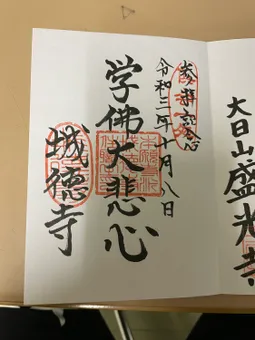 参拝記念
令和三年十月八日
学佛大悲心
城徳寺
大日山盛光寺